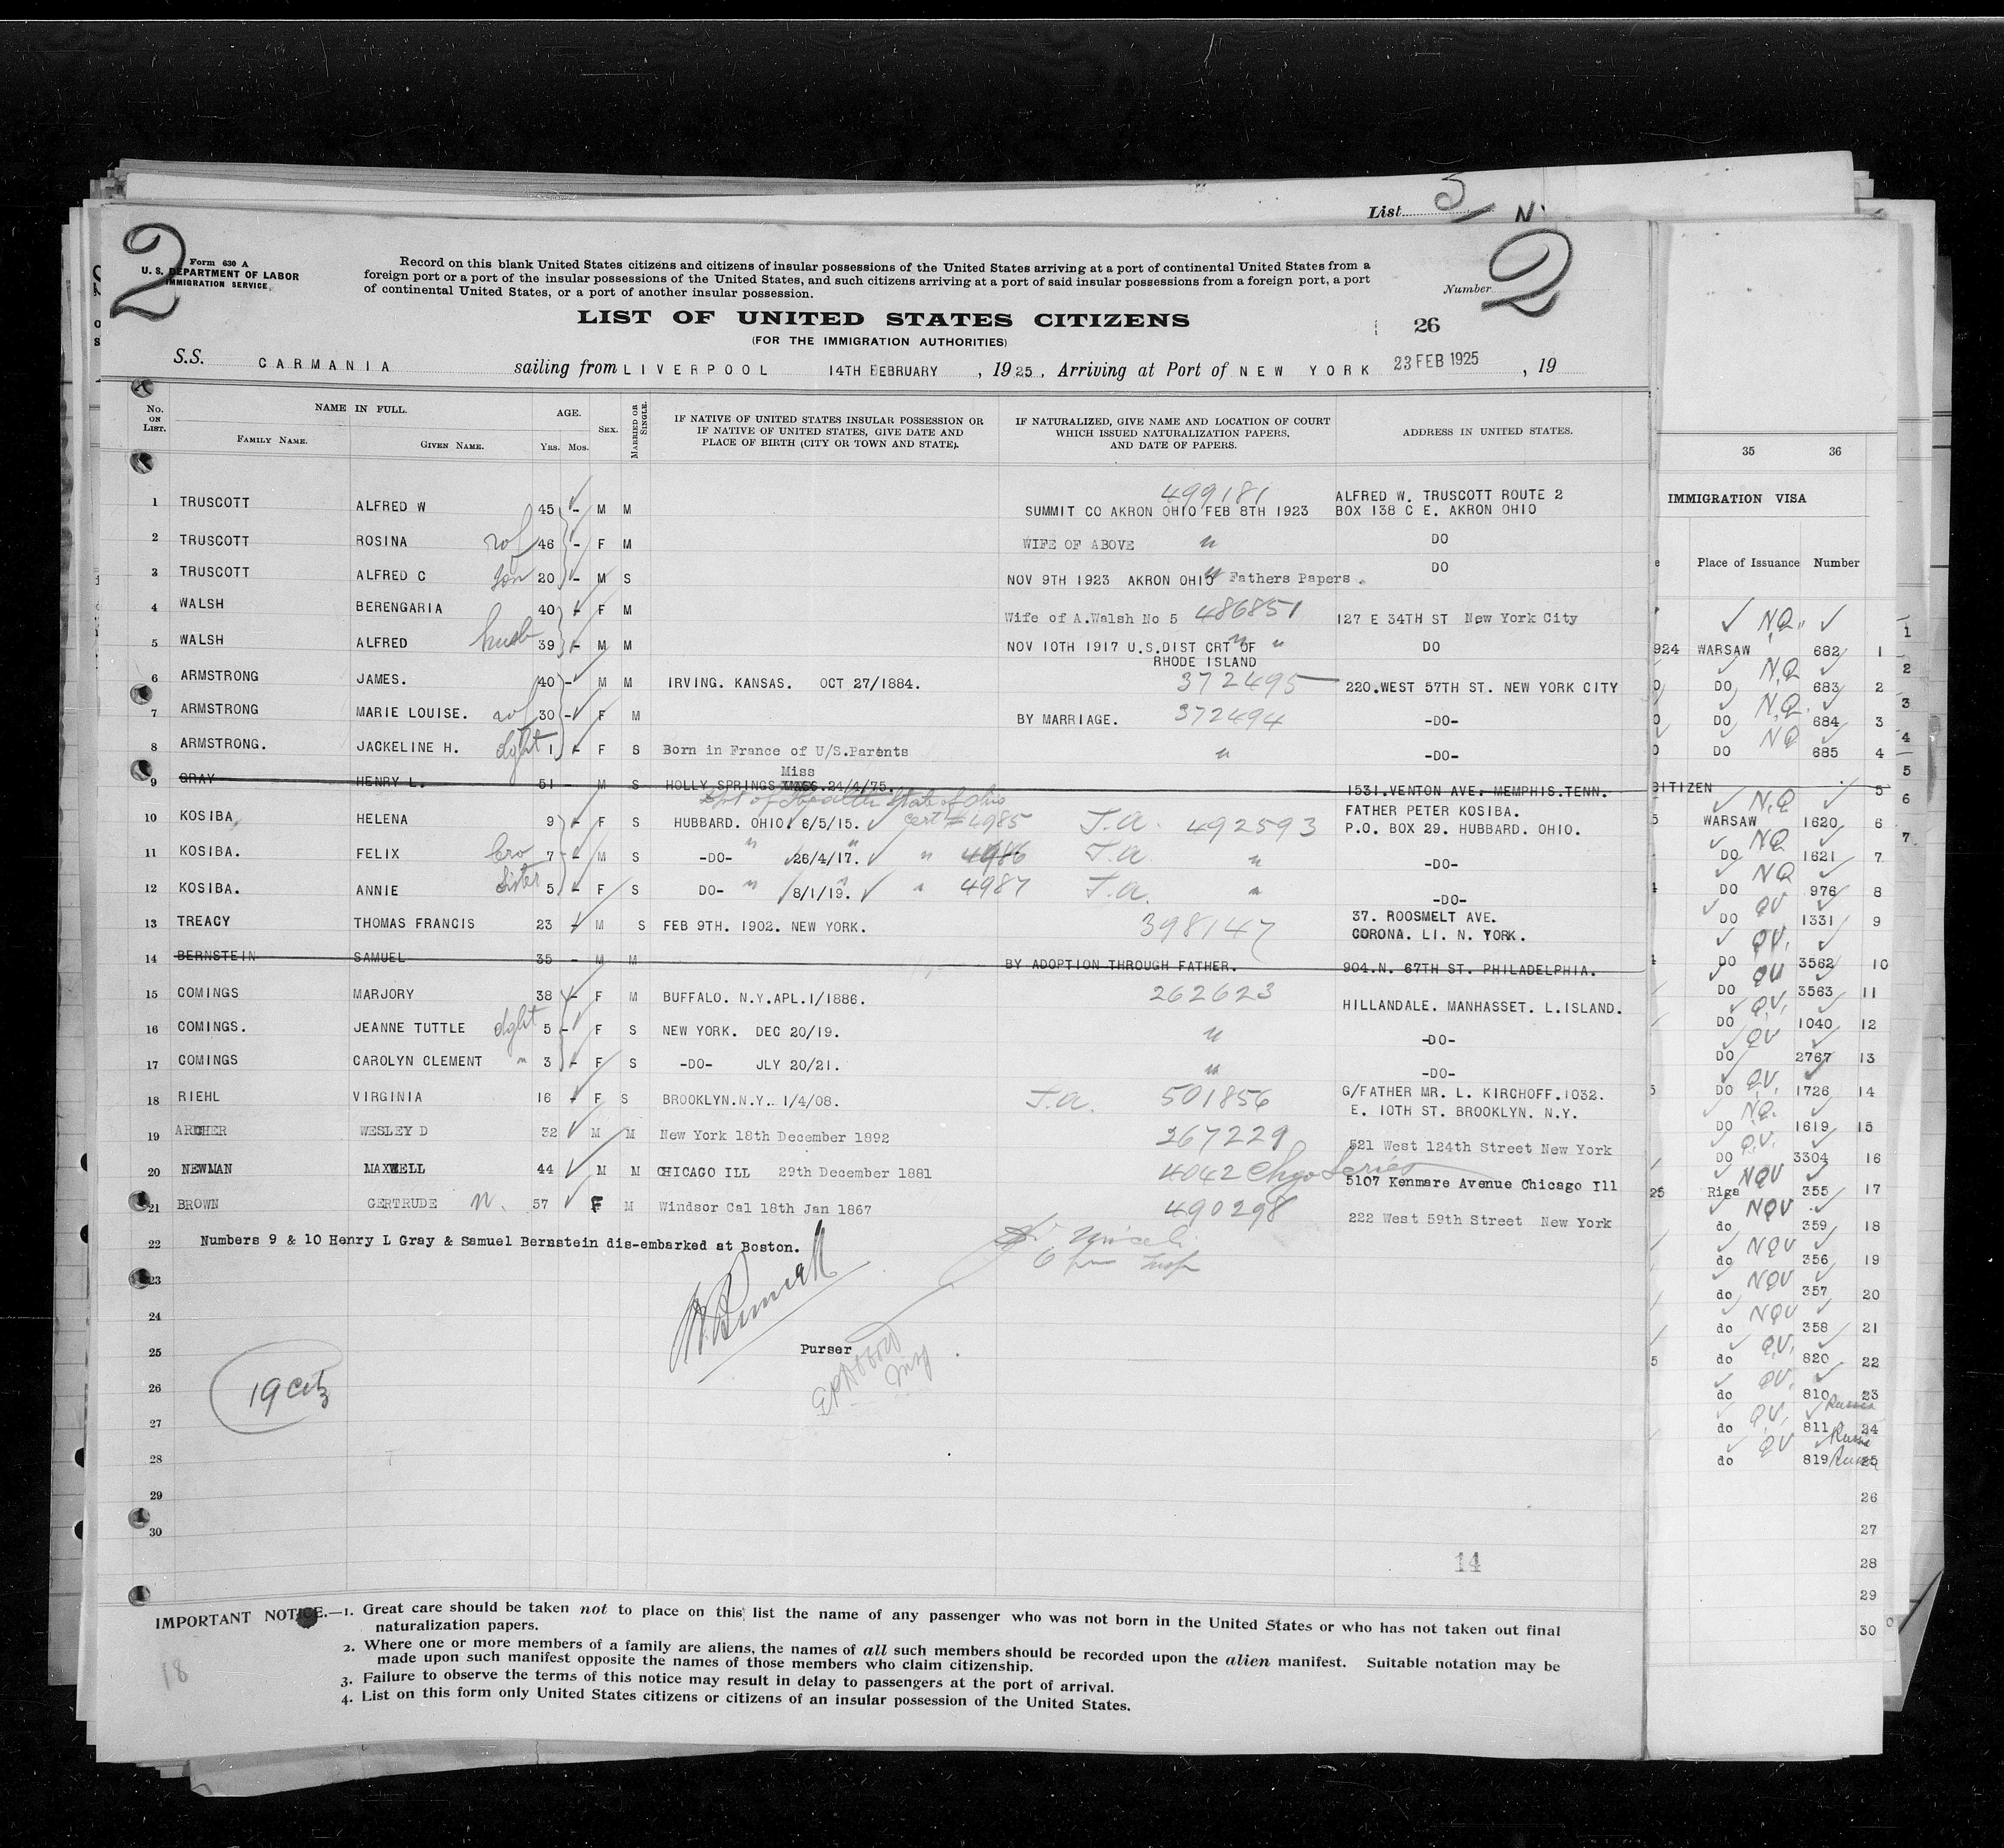 List 3
N
2
Form 630 A
U. S. DEPARTMENT OF LABOR
IMMIGRATION SERVICE
Record on this blank United States citizens and citizens of insular possessions of the United States arriving at a port of continental United States from a
foreign port or a port of the insular possessions of the United States, and such citizens arriving at a port of said insular possessions from a foreign port, a port
of continental United States, or a port of another insular possession.
Number 2
LIST OF UNITED STATES CITIZENS
26
(FOR THE IMMIGRATION AUTHORITIES)
S.S. CARMANIA sailing from LIVERPOOL 14TH FEBRUARY , 1925 , Arriving at Port of NEW YORK 23 FEB 1925 , 19
No. ON LIST. NAME IN FULL. FAMILY NAME. GIVEN NAME. AGE. YRS. MOS. SEX. MARRIED OR SINGLE.
IF NATIVE OF UNITED STATES INSULAR POSSESSION OR
IF NATIVE OF UNITED STATES, GIVE DATE AND
PLACE OF BIRTH (CITY OR TOWN AND STATE).
IF NATURALIZED, GIVE NAME AND LOCATION OF COURT
WHICH ISSUED NATURALIZATION PAPERS,
AND DATE OF PAPERS.
ADDRESS IN UNITED STATES.
499181 ALFRED W. TRUSCOTT ROUTE 2
1 TRUSCOTT ALFRED W 45 - M M SUMMIT CO AKRON OHIO FEB 8TH 1923 BOX 138 C E. AKRON OHIO
2 TRUSCOTT ROSINA wf 46 - F M WIFE OF ABOVE " DO
3 TRUSCOTT ALFRED C son 20 - M S NOV 9TH 1923 AKRON OHIO " Fathers Papers. DO
4 WALSH BERENGARIA 40 - F M Wife of A.Walsh No 5 486851 127 E 34TH ST New York City
5 WALSH ALFRED husb 39 - M M NOV 10TH 1917 U.S.DIST CRT OF " " DO
RHODE ISLAND
6 ARMSTRONG JAMES. 40 - M M IRVING. KANSAS. OCT 27/1884. 372495 220.WEST 57TH ST. NEW YORK CITY
7 ARMSTRONG MARIE LOUISE. wf 30 - F M BY MARRIAGE. 372494 -DO-
8 ARMSTRONG. JACKELINE H. dght 1 - F S Born in France of U/S.Parents " -DO-
Miss
9 GRAY HENRY L. 51 - M S HOLLY SPRINGS MASS.24/4/75. 1531.VENTON AVE. MEMPHIS.TENN.
Dpt of Health State of Ohio FATHER PETER KOSIBA.
10 KOSIBA HELENA 9 - F S HUBBARD. OHIO. 6/5/15. cert # 4985 J.A. 492593 P.O. BOX 29. HUBBARD. OHIO.
11 KOSIBA. FELIX bro 7 - M S -DO- " 26/4/17. " " 4986 J.A. " -DO-
12 KOSIBA. ANNIE sister 5 - F S DO- " 8/1/19. " " 4987 J.A. " -DO-
37. ROOSMELT AVE.
13 TREACY THOMAS FRANCIS 23 - M S FEB 9TH. 1902. NEW YORK. 398147 CORONA. LI. N. YORK.
14 BERNSTEIN SAMUEL 35 - M M BY ADOPTION THROUGH FATHER. 904.N. 67TH ST. PHILADELPHIA.
15 COMINGS MARJORY 38 - F M BUFFALO. N.Y.APL.1/1886. 262623 HILLANDALE. MANHASSET. L.ISLAND.
16 COMINGS. JEANNE TUTTLE dght 5 - F S NEW YORK. DEC 20/19. " -DO-
17 COMINGS CAROLYN CLEMENT " 3 - F S -DO- JLY 20/21. " -DO-
18 RIEHL VIRGINIA 16 - F S BROOKLYN.N.Y. 1/4/08. J.A. 501856 G/FATHER MR. L. KIRCHOFF.1032.
E. 10TH ST. BROOKLYN. N.Y.
19 ARCHER WESLEY D 32 M M New York 18th December 1892 267229 521 West 124th Street New York
20 NEWMAN MAXWELL 44 M M CHICAGO ILL 29th December 1881 4042 Chgo Series 5107 Kenmare Avenue Chicago Ill
21 BROWN GERTRUDE N. 57 F M Windsor Cal 18th Jan 1867 490298 222 West 59th Street New York
22 Numbers 9 & 10 Henry L Gray & Samuel Bernstein dis-embarked at Boston.
23
24
25 Purser
26
19 Citz
27
28
29
30
14
IMPORTANT NOTICE.—1. Great care should be taken not to place on this list the name of any passenger who was not born in the United States or who has not taken out final
naturalization papers.
2. Where one or more members of a family are aliens, the names of all such members should be recorded upon the alien manifest. Suitable notation may be
made upon such manifest opposite the names of those members who claim citizenship.
3. Failure to observe the terms of this notice may result in delay to passengers at the port of arrival.
4. List on this form only United States citizens or citizens of an insular possession of the United States.
18
35 36
IMMIGRATION VISA
Place of Issuance Number
N.Q.
924 WARSAW 682 1
N.Q
DO 683 2
N.Q.
DO 684 3
NQ
DO 685 4
CITIZEN 5
N.Q
WARSAW 1620 6
NQ
DO 1621 7
NQ
DO 976 8
QV
DO 1331 9
QV.
DO 3562 10
QV
DO 3563 11
Q.V.
DO 1040 12
QV
DO 2767 13
QV.
DO 1726 14
NQ.
DO 1619 15
Q.V.
DO 3304 16
NQV
25 Riga 355 17
NQV
do 359 18
NQV
do 356 19
NQV
do 357 20
NQV
do 358 21
Q.V.
do 820 22
QV.
do 810 23
Russia
Q.V.
do 811 24
Russia
QV
do 819 25
Russia
26
27
28
29
30
1
2
3
4
5
6
7